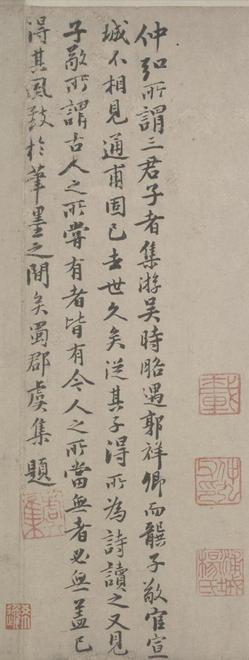 仲弘所謂三君子者集游吴時嘗遇郭祥卿而龔子敬官宣
城不相見通甫固已去世久矣従其子得所為詩讀之又見
子敬所謂古人之所當有者皆有今人之所當無者必無盖已
得其風致扵筆墨之間矣蜀郡虞集題
楊載
仲弘
浦城楊氏
虞集